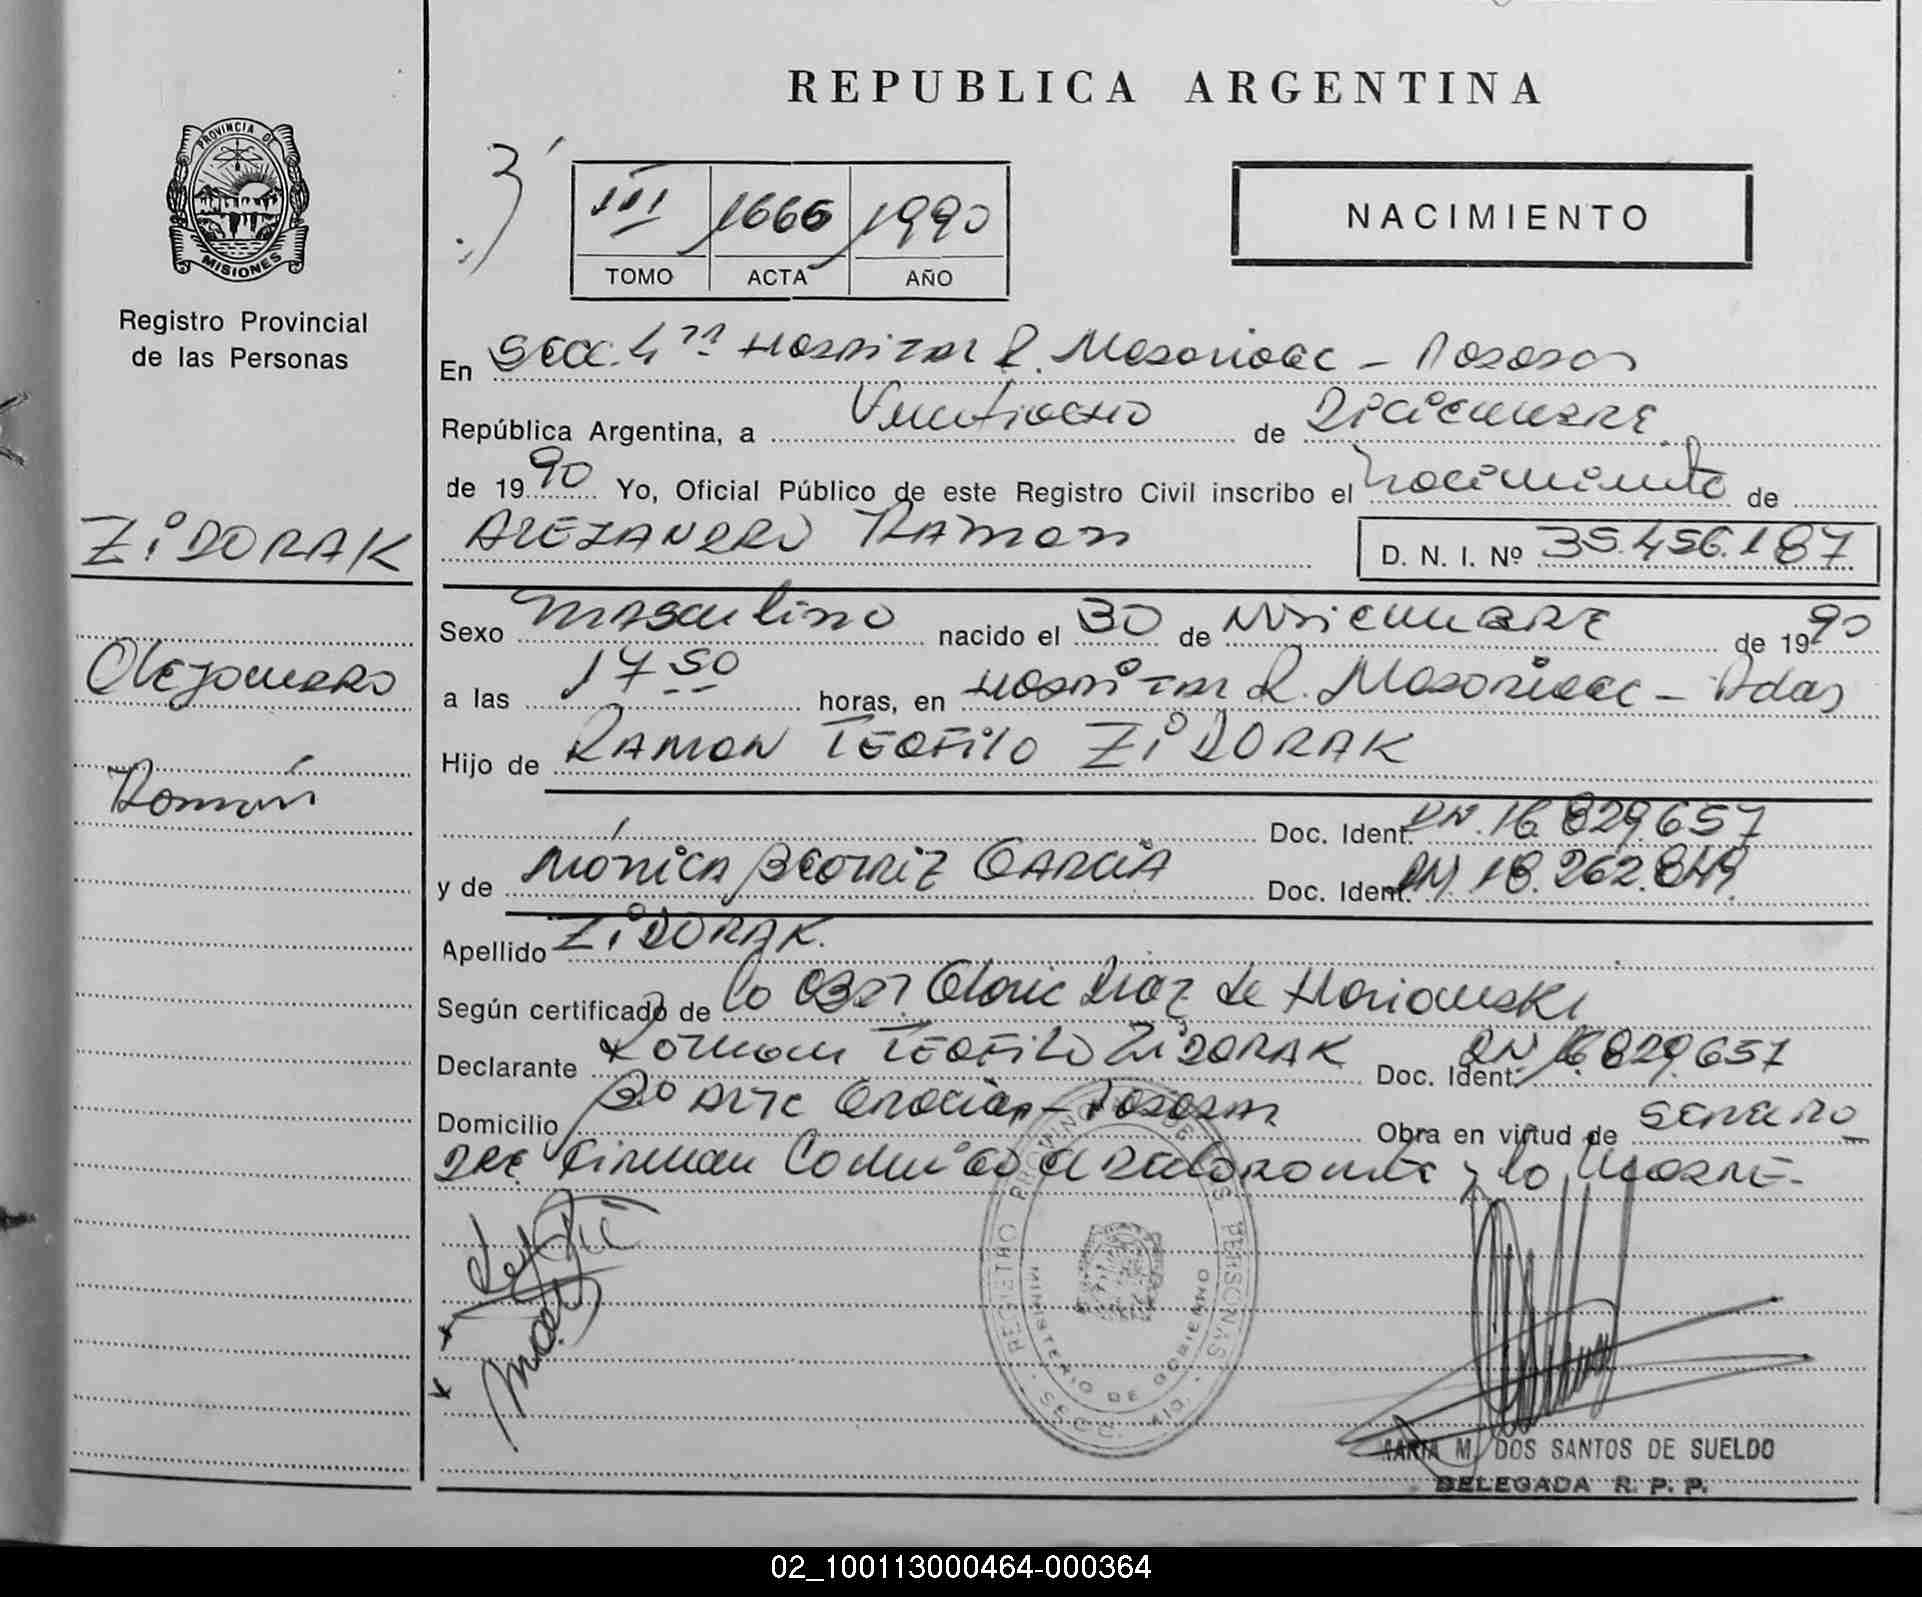 REPUBLICA ARGENTINA
PROVINCIA DE MISIONES
Registro Provincial
de las Personas
III 1666 1990
TOMO ACTA AÑO
NACIMIENTO
En Secc. 4ta Hospital R. Madariaga - Posadas
República Argentina, a Veintiocho de Diciembre
de 1990 Yo, Oficial Público de este Registro Civil inscribo el nacimiento de
ZiDORAK
ALEJANDRO RAMON D. N. I. Nº 35.456.187
Sexo masculino nacido el 30 de Noviembre de 1990
Alejandro
a las 17 50 horas, en Hospital R. Madariaga - Pdas
Hijo de RAMON TEOFilO ZiDORAK
Ramón
Doc. Ident. DN. 16.829.657
y de Mónica Beatriz GARCIA Doc. Ident. DN. 18.262.849
Apellido ZiDORAK.
Según certificado de la Obst. Diaz de
Declarante Ramon TEOFilO ZiDORAK Doc. Ident. DN 16.829.657
Domicilio Bo - Posadas Obra en virtud de ser el
Firman Conmigo el declarante y la Madre.-
REGISTRO PROVINCIAL DE LAS PERSONAS
MINISTERIO DE GOBIERNO
MARIA M. DOS SANTOS DE SUELDO
DELEGADA R. P. P.
02_100113000464-000364